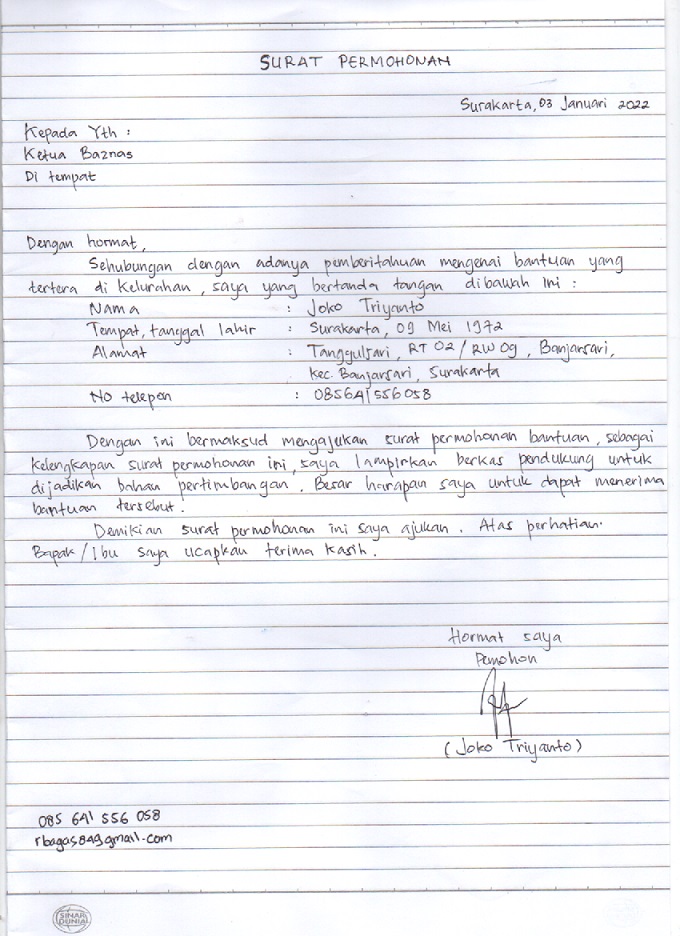 SURAT PERMOHONAN
Surakarta, 03 Januari 2022
Kepada Yth :
Ketua Baznas
Di tempat
Dengan hormat,
Sehubungan dengan adanya pemberitahuan mengenai bantuan yang
tertera di Kelurahan, saya yang bertanda tangan dibawah ini :
Nama : Joko Triyanto
Tempat, tanggal lahir : Surakarta, 09 Mei 1972
Alamat : Tanggulsari, RT 02 / RW 09, Banjarsari,
Kec. Banjarsari, Surakarta
No telepon : 085641556058
Dengan ini bermaksud mengajukan surat permohonan bantuan, sebagai
kelengkapan surat permohonan ini, saya lampirkan berkas pendukung untuk
dijadikan bahan pertimbangan. Besar harapan saya untuk dapat menerima
bantuan tersebut.
Demikian surat permohonan ini saya ajukan. Atas perhatian
Bapak / Ibu saya ucapkan terima kasih.
Hormat saya
Pemohon
(Joko Triyanto)
085 641 556 058
rbagas849gmail.com
SINAR
DUNIA